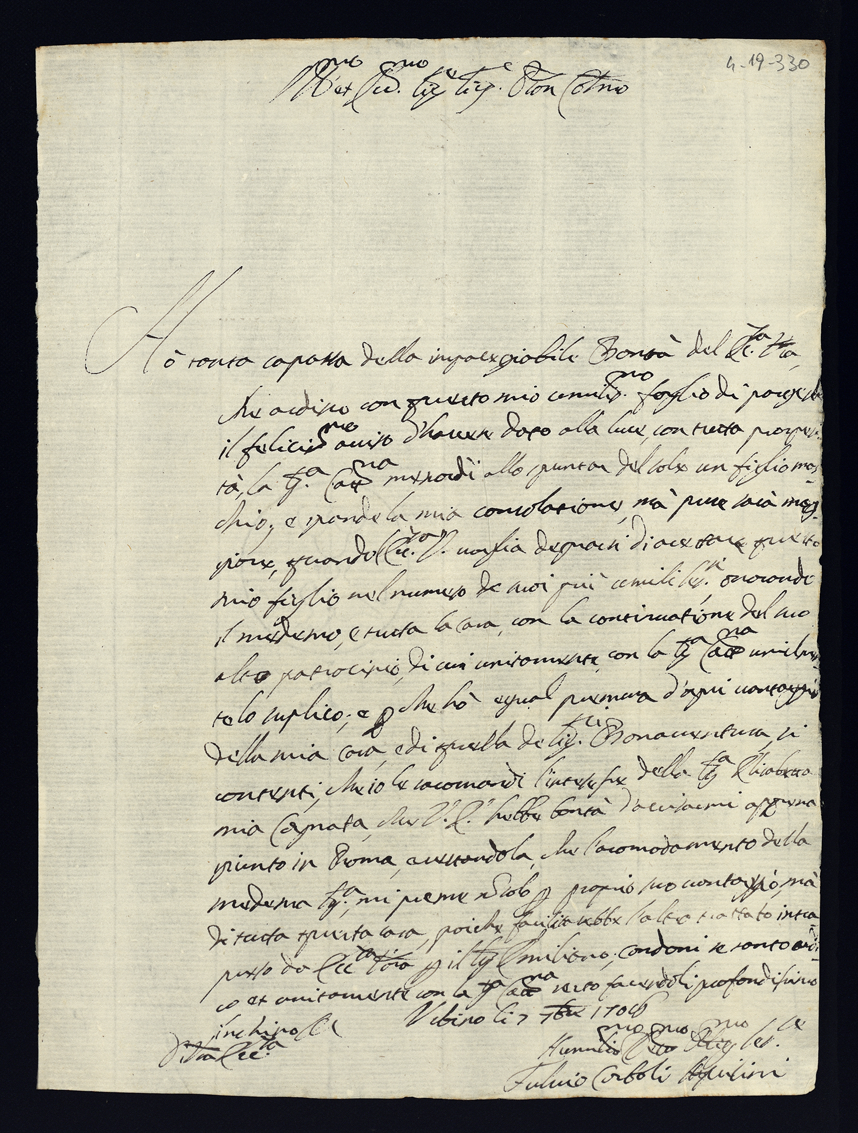 4-19-330
Ill.mo et Ecc.mo Sig.e Sig.e Pron Col.mo
Hò tanta caparra della impareggiabile Bontà del Ecc.za V.ra,
che ardisco con questo mio umilis.mo foglio di porgerle
il felicis.mo aviso d'havere dato alla luce, con tutta prosperi
tà, la Sig.a Cat.na mercordì allo spuntar del sole un figlio mas
chio; e grande la mia consolatione, mà pure sarà mag
giore, quando l'Ecc.za V. voglia degnarsi di accettare questo
mio figlio nel numero de suoi più umili ser.ri onorando
il medemo, e tutta la Casa, con la continuatione del suo
alto patrocinio, di cui unitamente con la Sig.a Cat.na umilmen
te lo suplico; e p che hò egual premura d'ogni vantaggio
della mia Casa, e di quella de Sig.ri Bonaventura, si
contenti, che io le racomandi l'interesse della Sig.a Elisabetta
mia Cognata, che V. E. hebbe bontà d'avisarmi appena
giunto in Roma, accertandola, che l'acomodamento della
medema Sig.a, mi preme p proprio suo vantaggio, mà
di tutta questa casa, poiche faciliterebbe l'altro trattato
da Ecc.za V.ra p il Sig. Emiliano; condoni se tanto
et unitamente con la Sig.a Cat.na resto facendoli profondissimo
inchino
Vrbino li 7 7bre 1706
D V.ra Ecc.za
Humilis.mo Dev.mo Oblig.mo Ser.re
Fulvio Corboli Aquilini